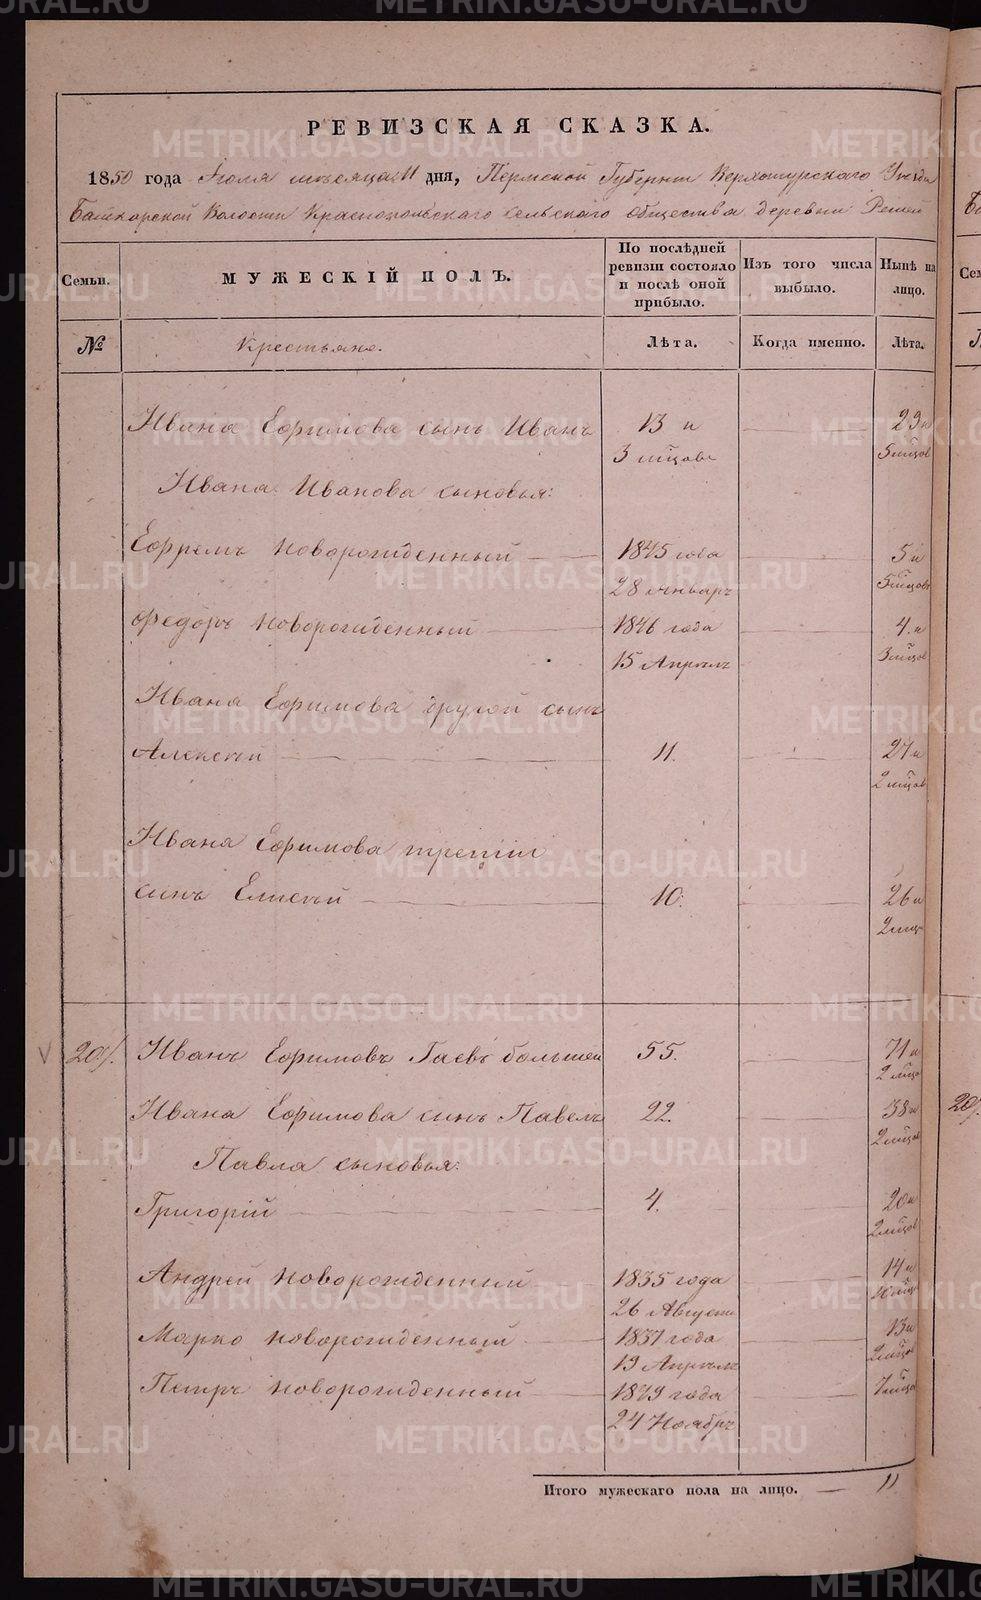 РЕВИЗСКАЯ СКАЗКА.
1850 года Июля месяца 11 дня, Пермской Губернии Верхотурского Уезда
Башкарской Волости Краснопольского сельского общества деревни
Семьи. МУЖЕСКІЙ ПОЛЪ. По послѣдней ревизіи состояло и послѣ оной прибыло. Изъ того числа выбыло. Нынѣ на лицо.
№ Крестьяне. Лѣта. Когда именно. Лѣта.
Ивана Ефимова сынъ Иванъ 13 и 29 и
3 мѣсцовъ 5 мѣсцов
Ивана Иванова сыновья:
Ефремъ новорожденный 1845 года 5 и
28 январъ 5 мѣсцовъ
Федоръ новорожденный 1846 года 4 и
15 Апрѣлъ 3 мѣсцов
Ивана Ефимова другой сынъ
Алексѣй 11. 27 и
2 мѣсцов
Ивана Ефимова третій
сынъ Елисѣй 10. 26 и
2 мѣсц
Иванъ Ефимовъ Гаевъ большей 55. 71 и
2 мѣсцо
Ивана Ефимова сынъ Павелъ 22. 38 и
2 мѣсцов
Павла сыновья:
Григорій 4. 20 и
2 мѣсцов
Андрей новорожденный 1835 года 14 и
26 Августа 10 мѣсц
Марко новорожденный 1837 года 13 и
19 Апрѣлъ 2 мѣсцов
Петръ новорожденный 1849 года 7 мѣсцов
24 Ноябръ
Итого мужескаго пола на лицо. — 11
METRIKI.GASO-URAL.RU